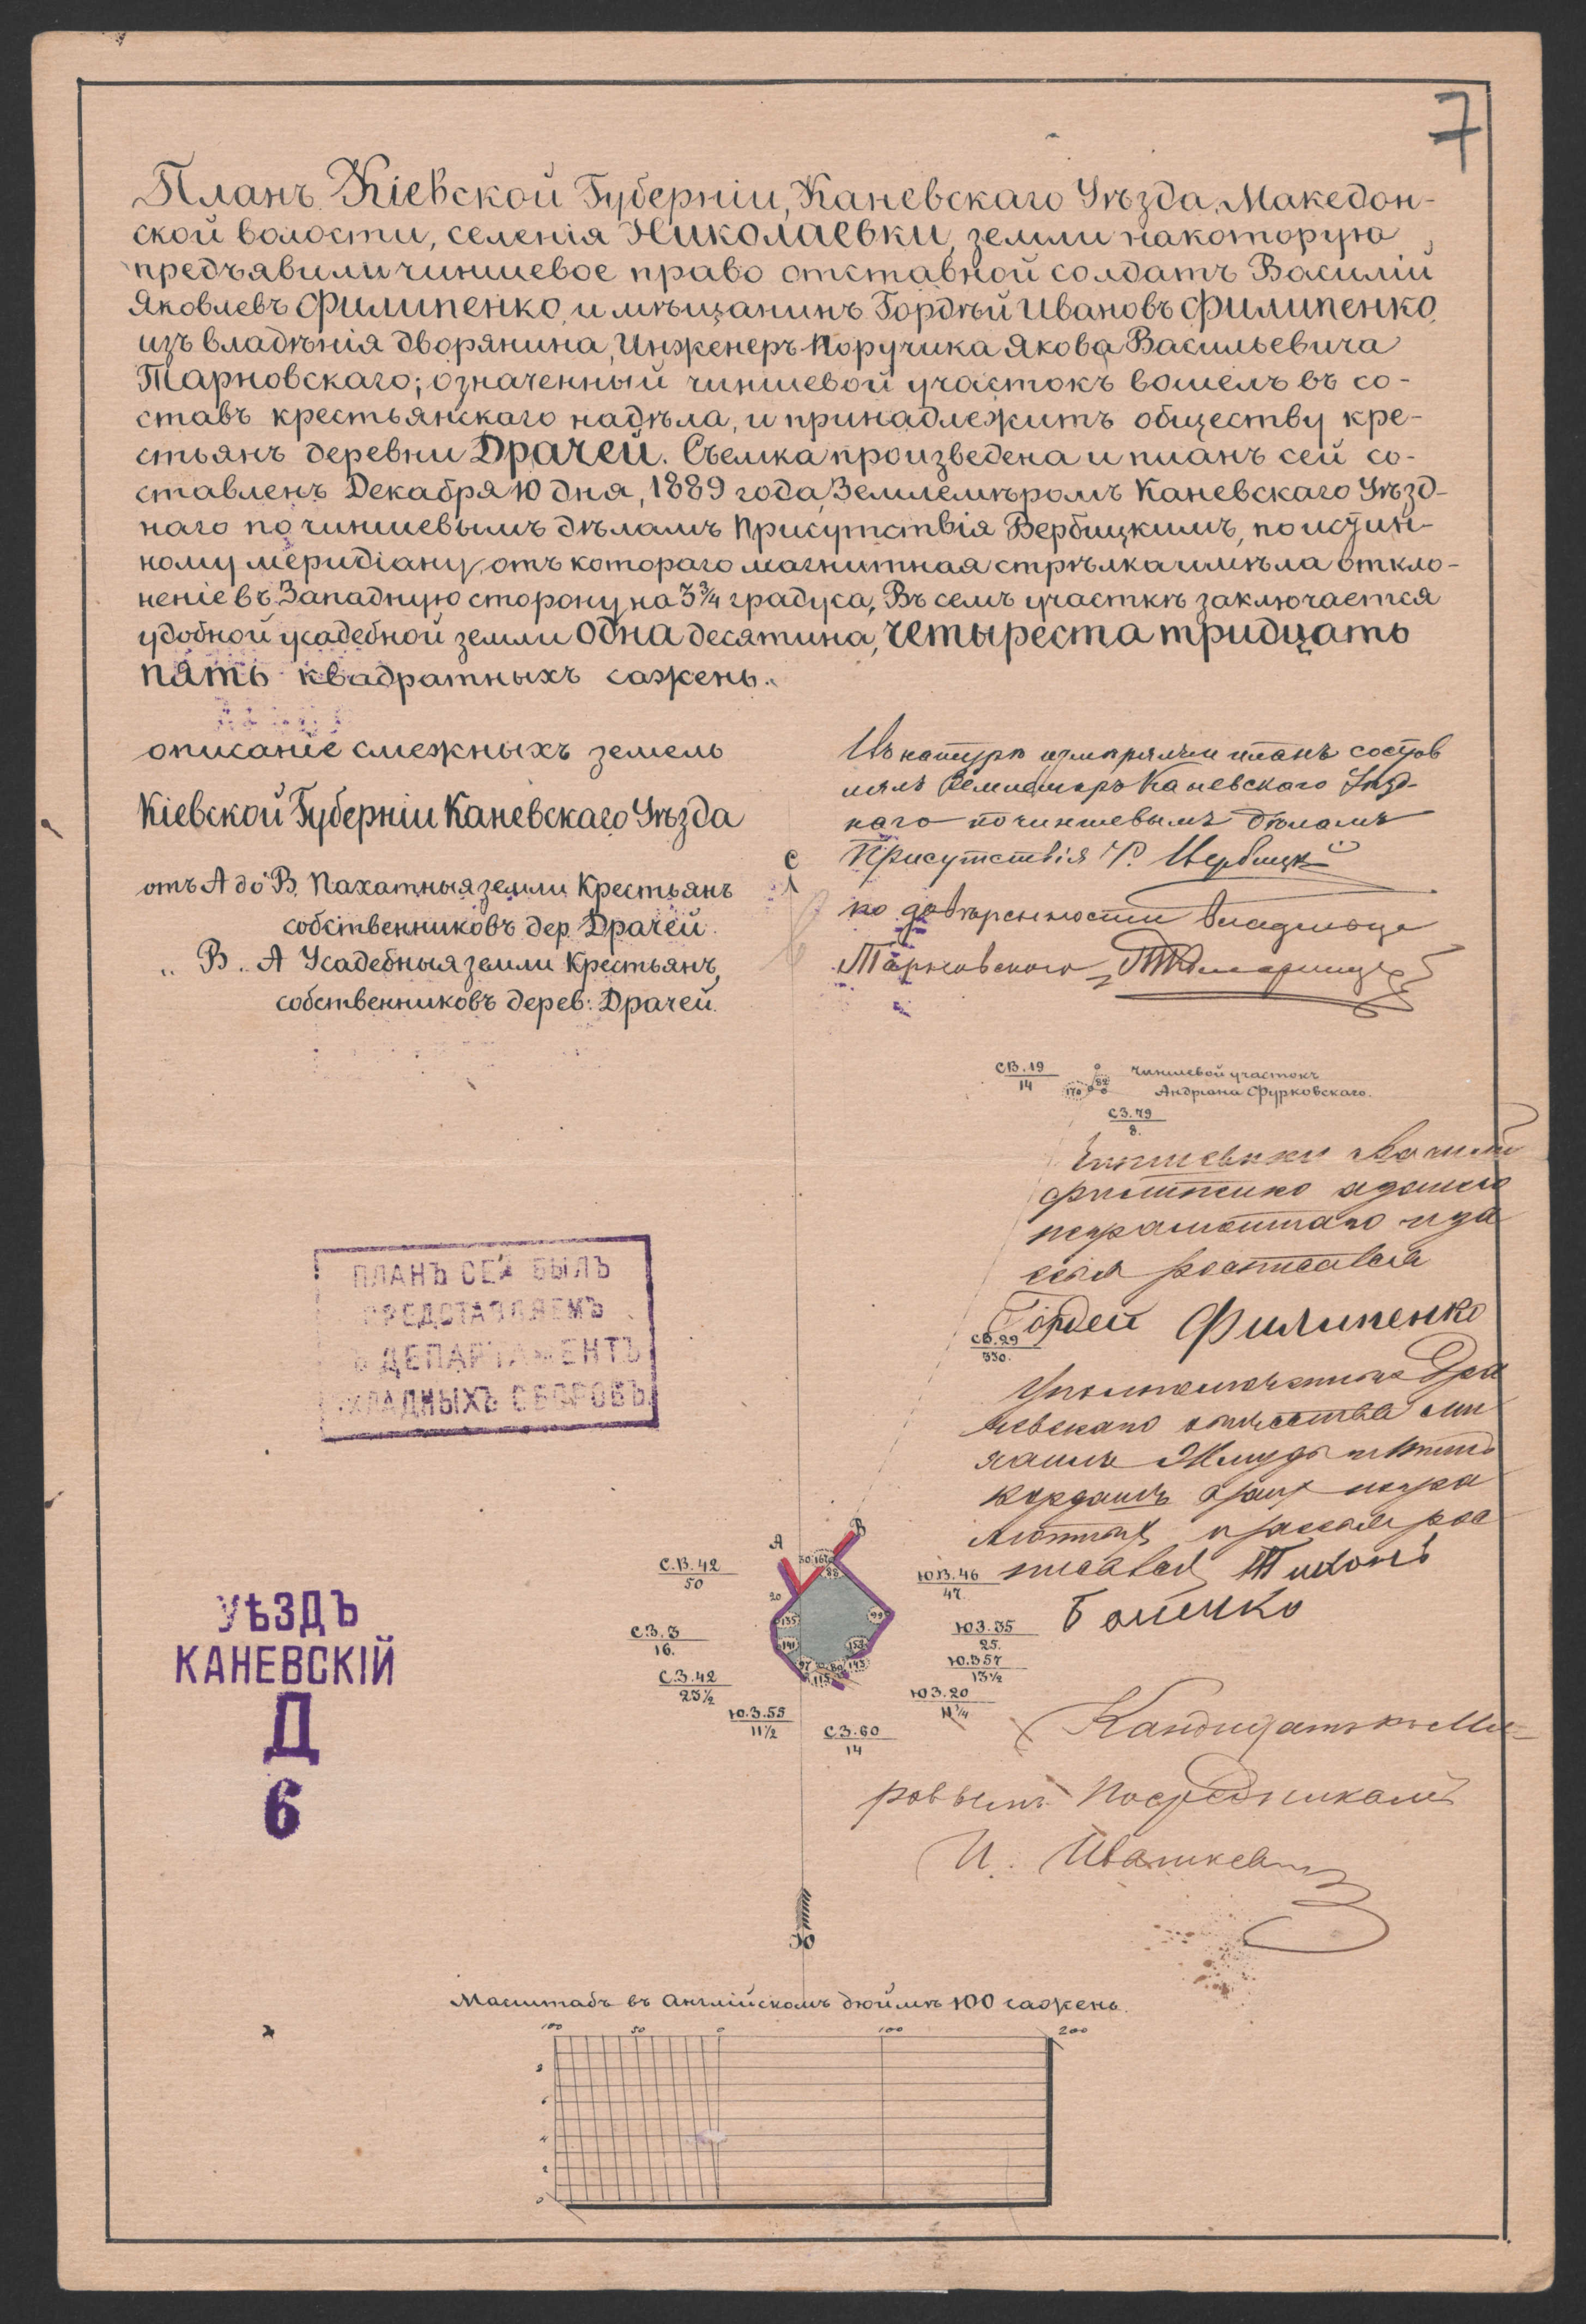 7
Планъ Кіевской Губерніи, Каневскаго Уѣзда, Македон-
ской волости, селенія Николаевки, земли на которую
предъявили чиншевое право отставной солдатъ Василій
Яковлевъ Филипенко, и мѣщанинъ Гордѣй Ивановъ Филипенко
изъ владѣнія дворянина, Инженеръ Поручика Якова Васильевича
Тарновскаго; означенный чиншевой участокъ вошелъ въ со-
ставъ крестьянскаго надѣла, и принадлежитъ обществу кре-
стьянъ деревни Драчей. Съемка произведена и планъ сей со-
ставленъ Декабря 10 дня, 1889 года, Землемѣромъ Каневскаго Уѣзд-
наго по чиншевымъ дѣламъ Присутствія Вербицкимъ, по истин-
ному меридіану, отъ котораго магнитная стрѣлка имѣла откло-
неніе въ Западную сторону на 3¾ градуса, Въ семъ участкѣ заключается
удобной усадебной земли одна десятина, четыреста тридцать
пять квадратныхъ сажень.
описаніе смежныхъ земель
Кіевской Губерніи Каневскаго Уѣзда
отъ А до В. Пахатныя земли Крестьянъ
собственниковъ дер. Драчей.
„ В „ А Усадебныя земли Крестьянъ,
собственниковъ дерев: Драчей.
Въ натурѣ измѣрялъ и планъ состав
лялъ Землемѣръ Каневского Уѣзд-
наго по чиншевымъ дѣламъ
Присутствія Вербицкій
С
по довѣренности владельца
Тарновского
СВ. 19
14
170
82
чиншевой участокъ
Андріана Фурковскаго.
СЗ. 79
8.
Василій
Филипенко
росписался
Гордей Филипенко
СВ. 29
330.
Тихонъ
Бойико
А
В
С.В. 42
50
50
167
88
20
135
141
97
115
80
143
153
99
С.З. 3
16.
С.З. 42
23½
Ю.З. 55
11½
СЗ. 60
14
ЮВ. 46
47.
ЮЗ. 35
25.
Ю.З 57
13½
ЮЗ. 20
11¼
Кандидатъ къ Ми-
ровымъ Посредникамъ
И. Ивашкевич
ПЛАНЪ СЕЙ БЫЛЪ
ПРЕДСТАВЛЯЕМЪ
ВЪ ДЕПАРТАМЕНТЪ
ОКЛАДНЫХЪ СБОРОВЪ.
УѢЗДЪ
КАНЕВСКІЙ
Д
6
Ю
Масштабъ въ Англійскомъ дюймѣ 100 сажень.
100 50 0 100 200
8
6
4
2
0